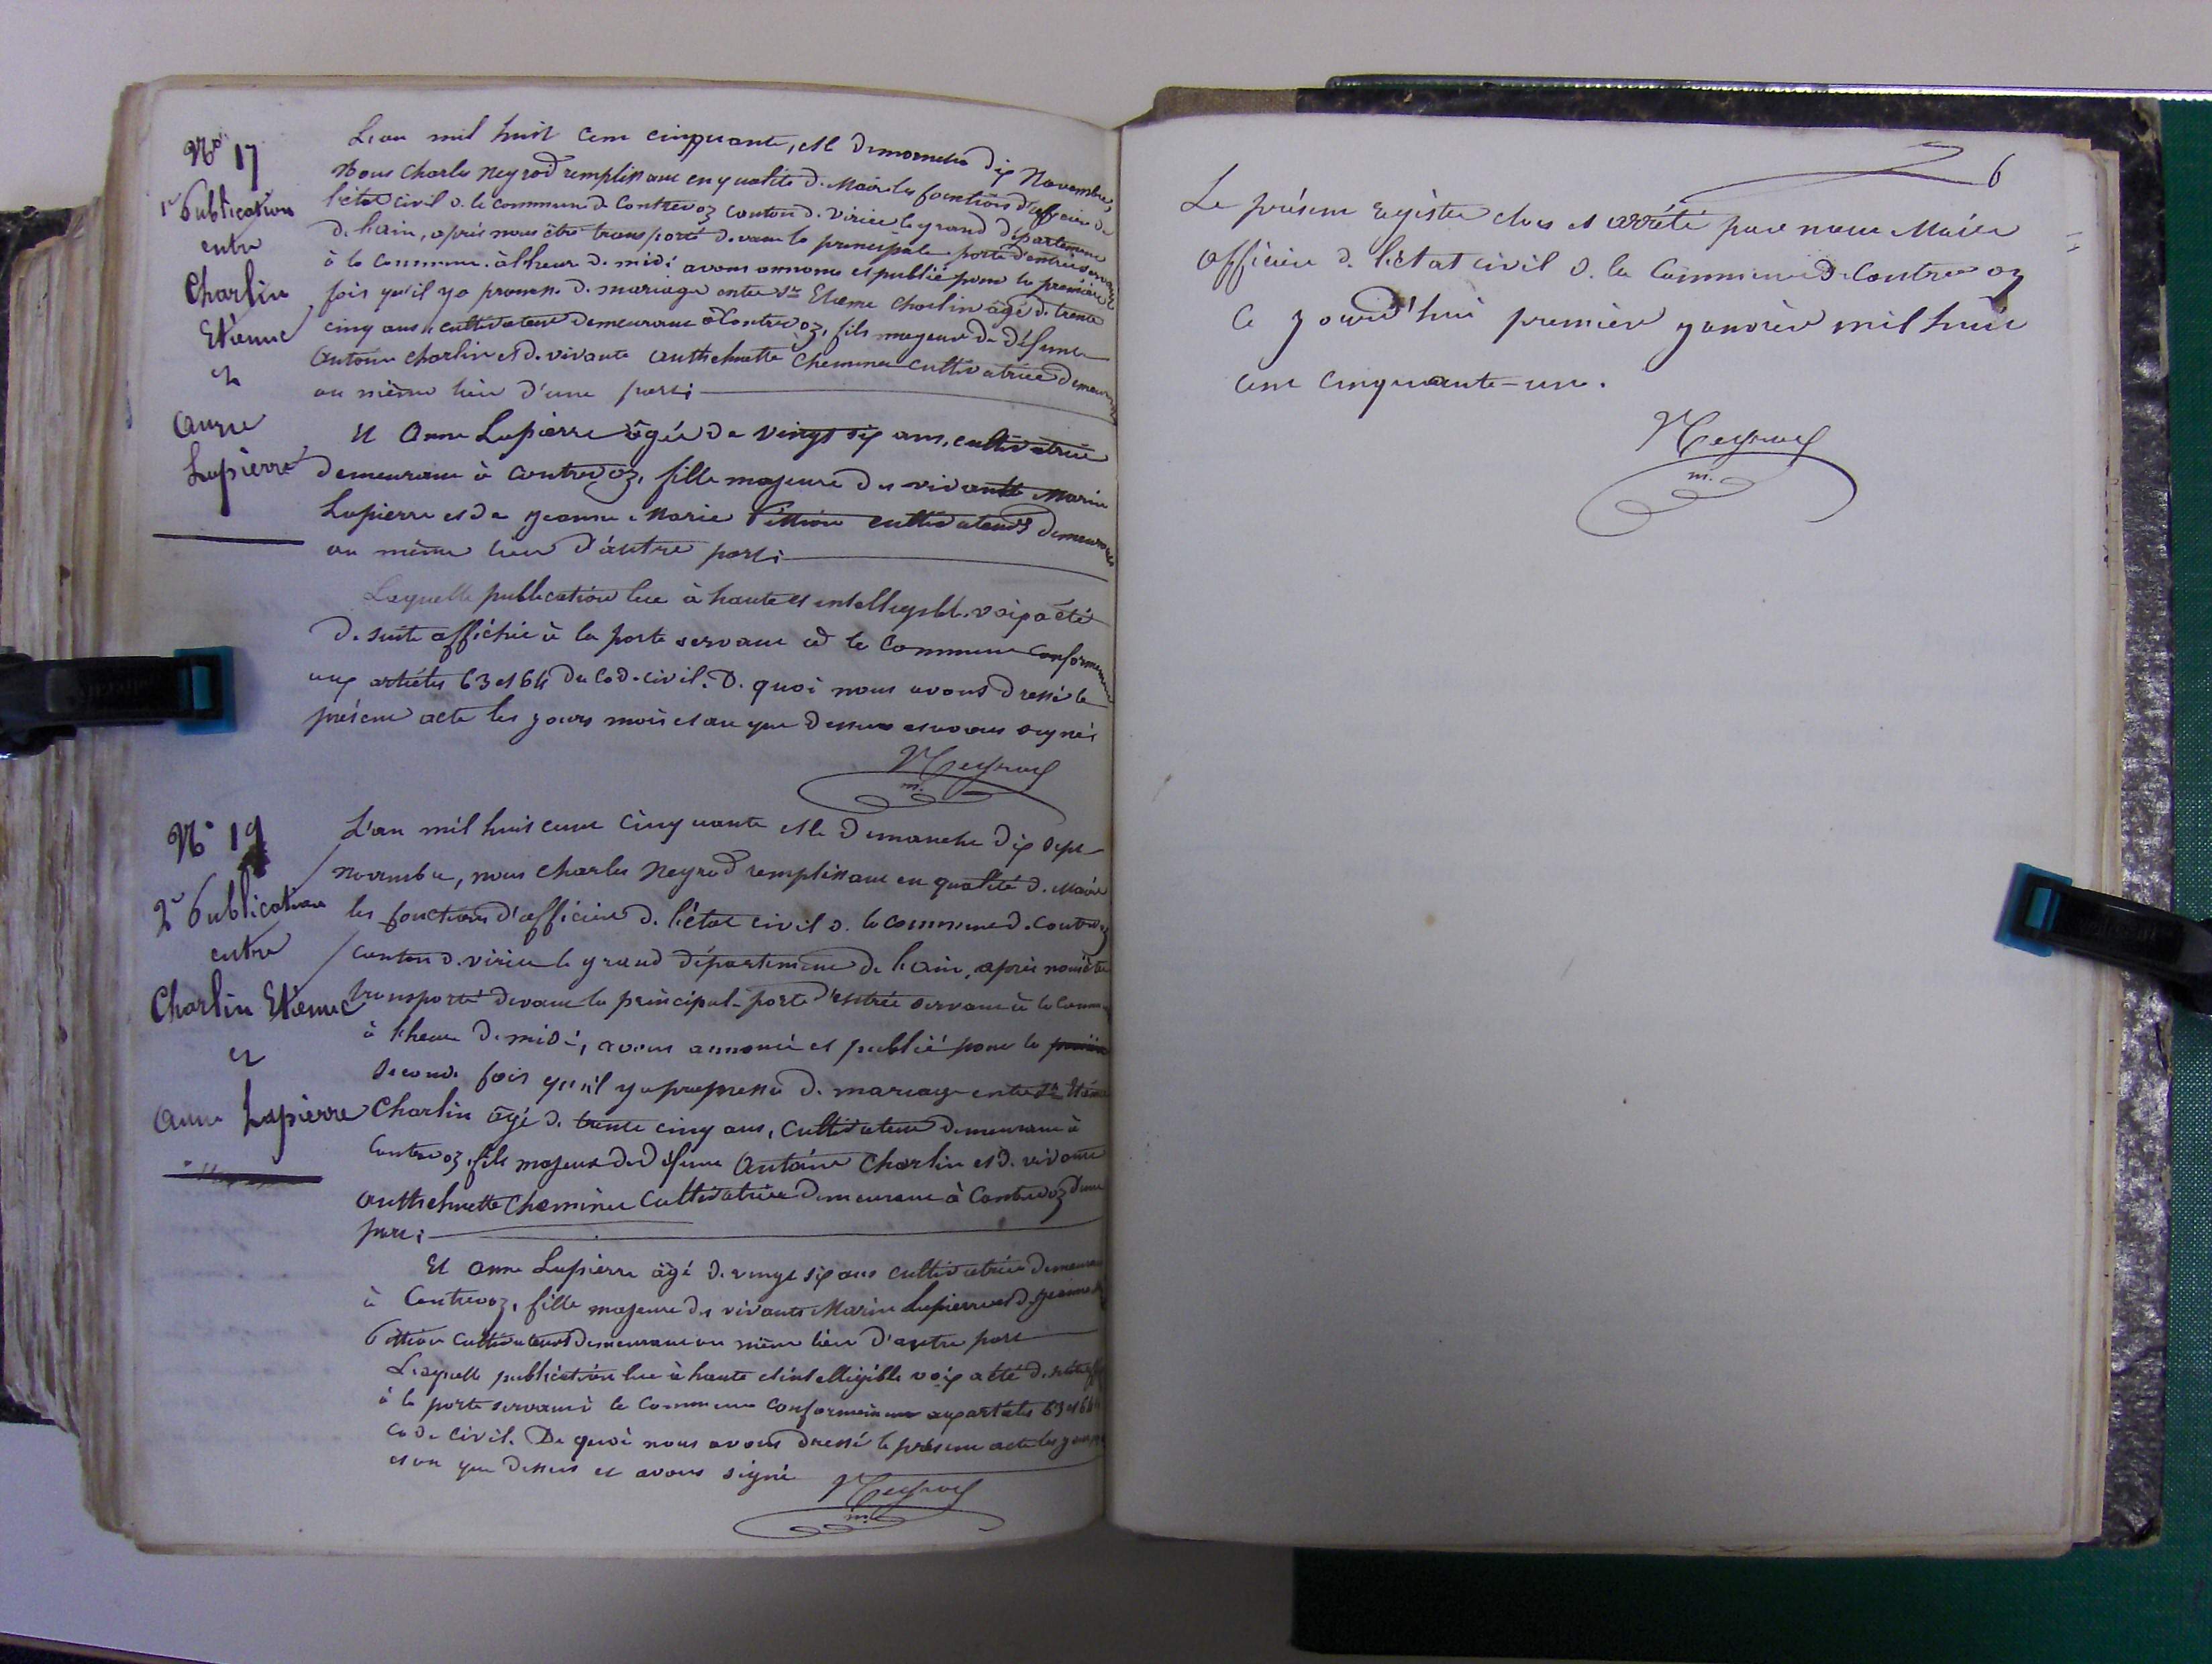 N° 17
1re Publication
entre
Charlin
Etienne
et
Anne
Lapierre
L'an mil huit cent cinquante, et le dimanche dix Novembre,
Nous Charles Neyrod remplissant en qualité de Maire les fonctions d'officier de
l'état civil de la commune de Contrevoz canton de virieu le grand département
de l'ain, après nous être transporté devant la principale porte d'entrée servant
à la commune, à l'heure de midi avons annoncé et publié pour la première
fois qu'il y a promesse de mariage entre sr Etienne Charlin âgé de trente
cinq ans, cultivateur demeurant à Contrevoz, fils majeur de défunt
Antoine Charlin et de vivante Anthelmette Cheminee cultivatrice demeurant
au même lieu d'une part;
Et Anne Lapierre âgée de vingt six ans, cultivatrice
demeurant à Contrevoz, fille majeure des vivants Marin
Lapierre et de Jeanne Marie Pittion cultivateurs demeurant
au même lieu d'autre part;
Laquelle publication lue à haute et intelligible voix a été
de suite affichée à la porte servant à la Commune conformément
aux articles 63 et 64 du Code civil. De quoi nous avons dressé le
présent acte les jours mois et an que dessus et avons signé
Neyrod
m.
N° 19
2e Publication
entre
Charlin Etienne
et
Anne Lapierre
L'an mil huit cent cinquante et le dimanche dix sept
novembre, nous Charles Neyrod remplissant en qualité de Maire
les fonctions d'officier de l'état civil de la commune de Contrevoz
canton de virieu le grand département de l'ain, après nous être
transporté devant la principale porte d'entrée servant à la Commune
à l'heure de midi, avons annoncé et publié pour la première
seconde fois qu'il y a promesse de mariage entre sr Etienne
Charlin âgé de trente cinq ans, cultivateur demeurant à
Contrevoz, fils majeur de défunt Antoine Charlin et de vivante
Anthelmette Cheminee cultivatrice demeurant à Contrevoz d'une
part;
Et Anne Lapierre âgé de vingt six ans cultivatrice demeurant
à Contrevoz, fille majeure des vivants Marin Lapierre et de Jeanne M
Pittion cultivateurs demeurant au même lieu d'autre part
Laquelle publication lue à haute et intelligible voix a été de suite aff
à la porte servant à la Commune conformément aux articles 63 et 64
Code civil. De quoi nous avons dressé le présent acte les jours
et an que dessus et avons signé
Neyrod
m.
6
Le présent registre clos et arrêté par nous Maire
officier de l'état civil de la Commune de Contrevoz
Ce jourd'hui premier janvier mil huit
cent cinquante-un.
Neyrod
m.